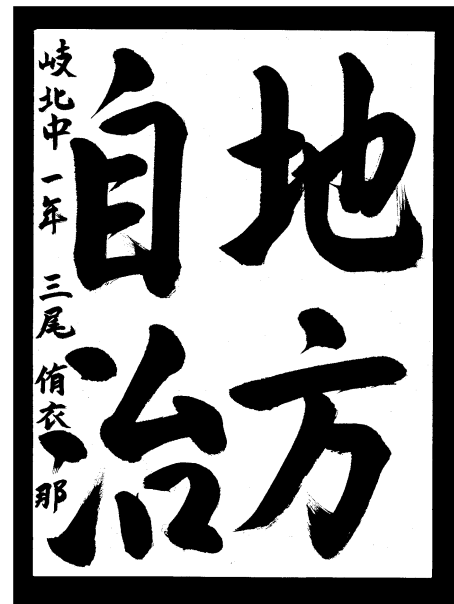 地方
自治
岐北中 一年 三尾 侑衣那